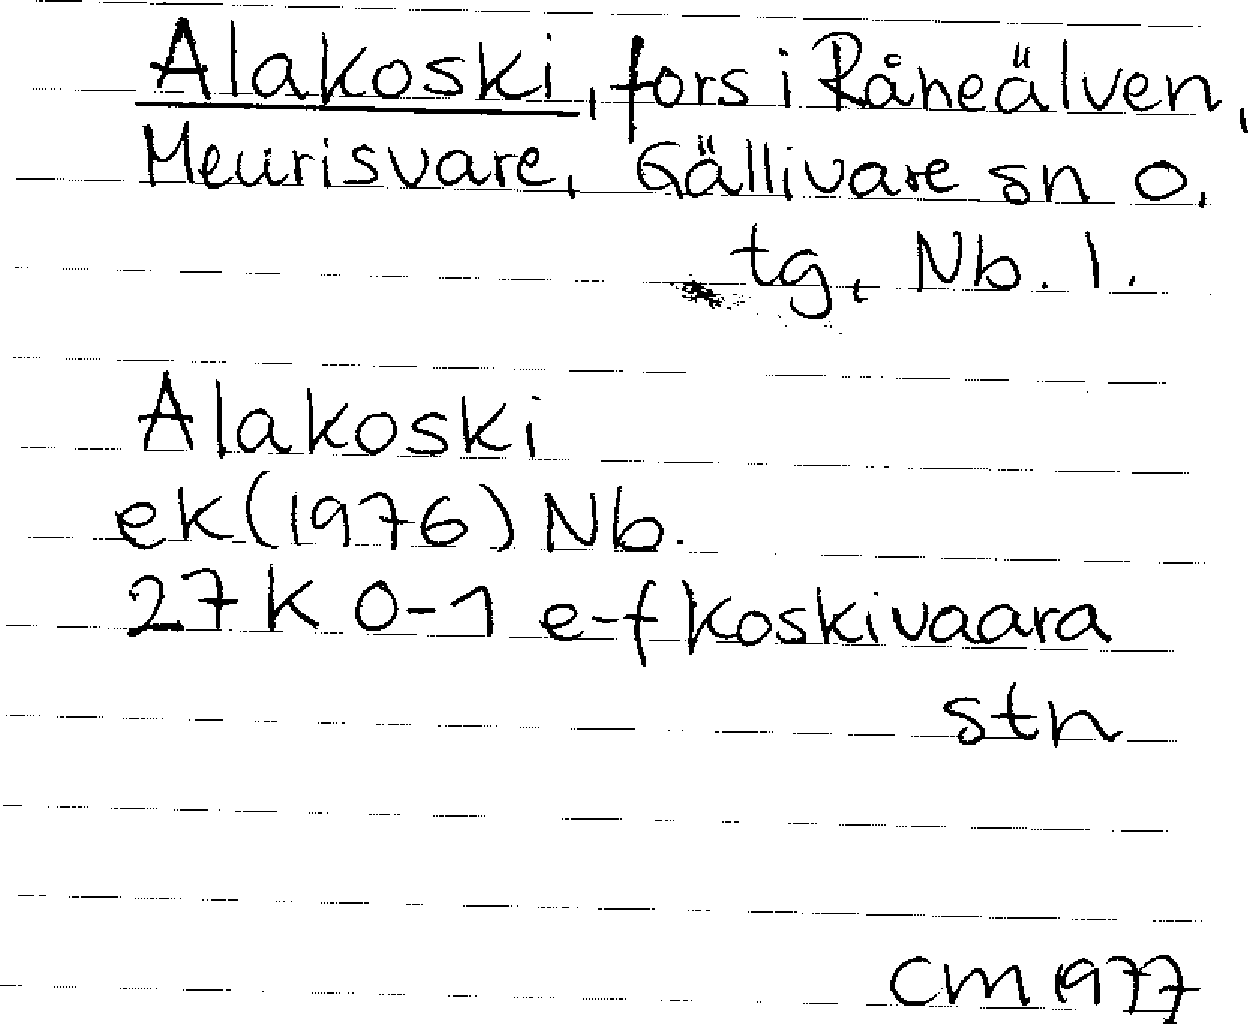 Alakoski, fors i Råneälven,
Meurisvare, Gällivare sn o.
tg, Nb. l.
Alakoski
ek (1976) Nb.
27 K 0-1 e-f Koskivaara
stn
CM 1977